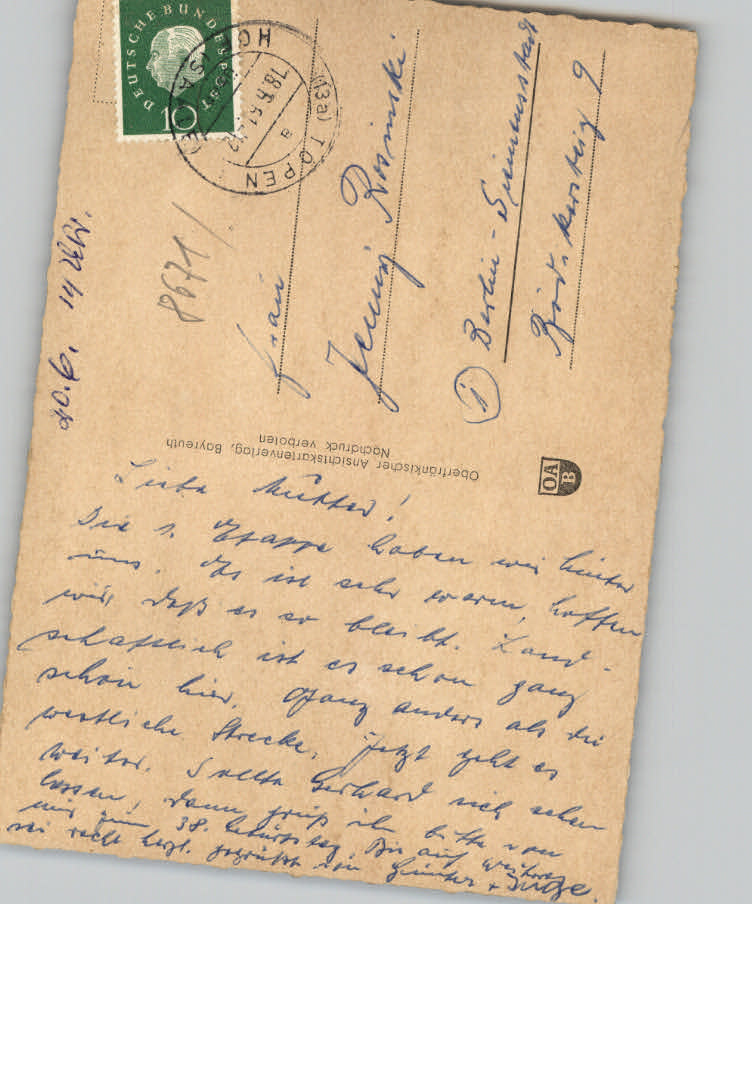 DEUTSCHE BUNDESPOST
10
(13a) TÖPEN
HOF (SAALE)
a
18.6.61
20.6. 14 Uhr.
8671
Frau
Jenny Rosinski
① Berlin - Siemensstadt
9
Oberfränkischer Ansichtskartenverlag, Bayreuth
Nachdruck verboten
OA
B
Liebe Mutter!
Die 1. Etappe haben wir hinter
uns. Es ist sehr warm, hoffen
wir, daß es so bleibt. Land-
schaftlich ist es schon ganz
schön hier. Ganz anders als die
westliche Strecke. Jetzt geht es
weiter. Sollte Gerhard sich sehen
lassen, dann grüß ihn bitte von
mir zum 38. Geburtstag. Bis auf weiteres
sei recht herzl. gegrüßt von Günter + Inge.